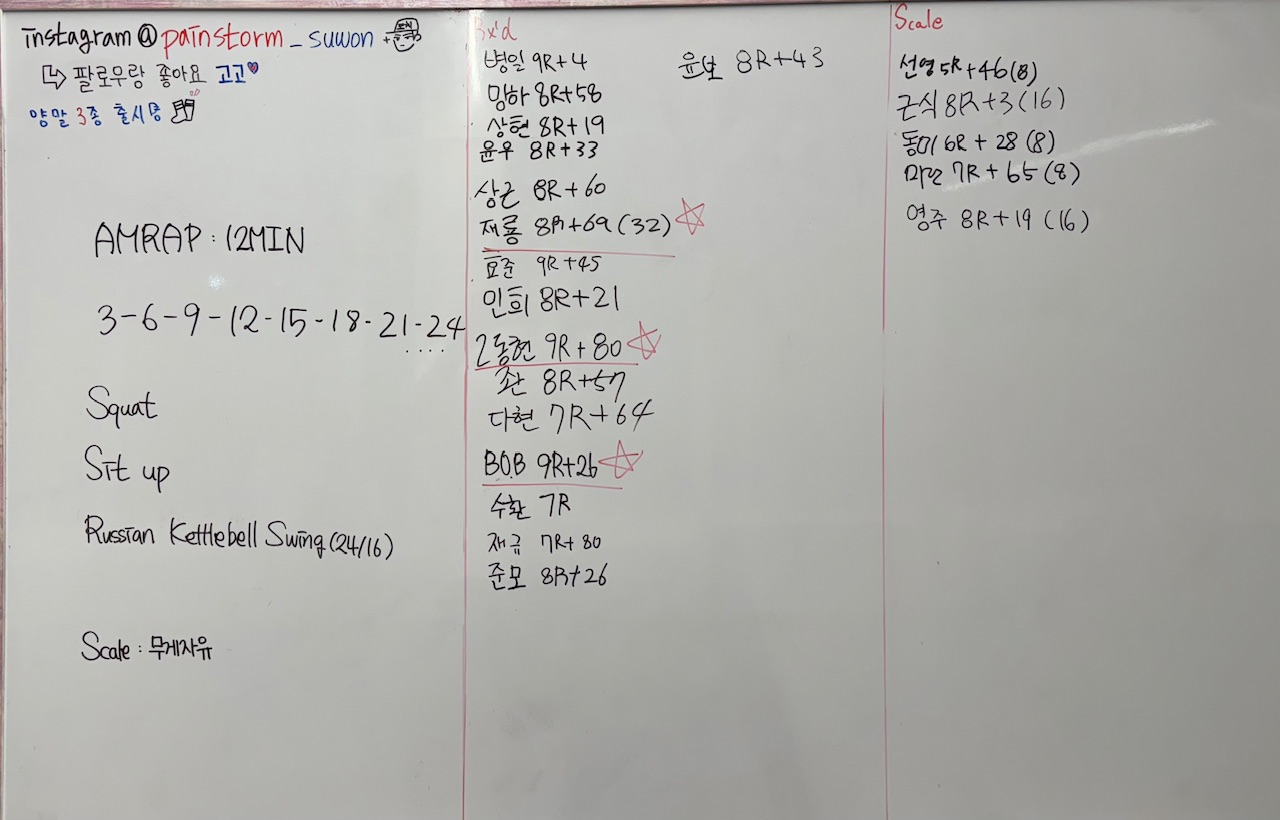 instagram@painstorm_suwon +
↳ 팔로우랑 좋아요 고고♥
양말 3종 출시중
AMRAP : 12MIN
3-6-9-12-15-18-21-24
....
Squat
Sit up
Russian Kettlebell Swing(24/16)
Scale : 무게자유
Rx'd
병일 9R+4
망하 8R+58
상현 8R+19
윤우 8R+33
상근 8R+60
재룡 8R+69(32)
효준 9R+45
민희 8R+21
2동현 9R+80
좌 8R+57
다현 7R+64
B.O.B 9R+26
수환 7R
재규 7R+80
준모 8R+26
윤보 8R+43
Scale
선영 5R+46(8)
근식 8R+3(16)
동미 6R+28(8)
미란 7R+65(8)
영주 8R+19(16)